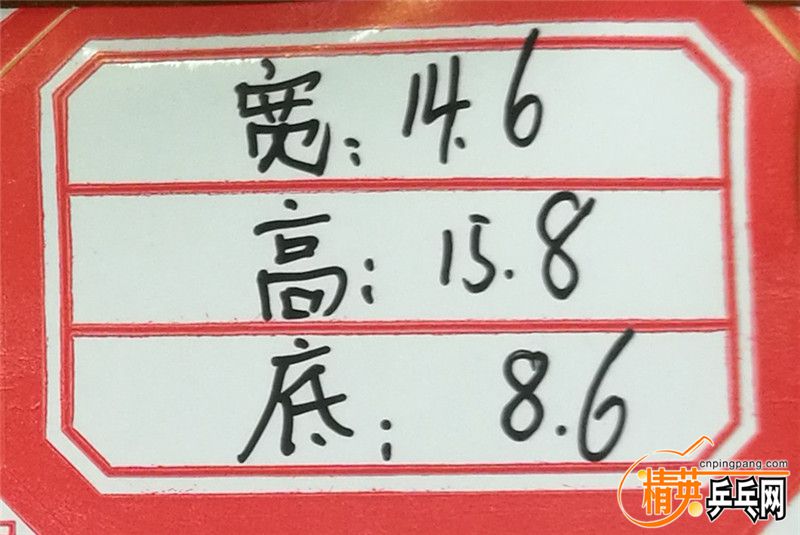 宽：14.6
高：15.8
底：8.6
cnpingpang.com
精英乒乓网